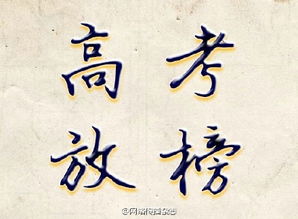 高考
放榜